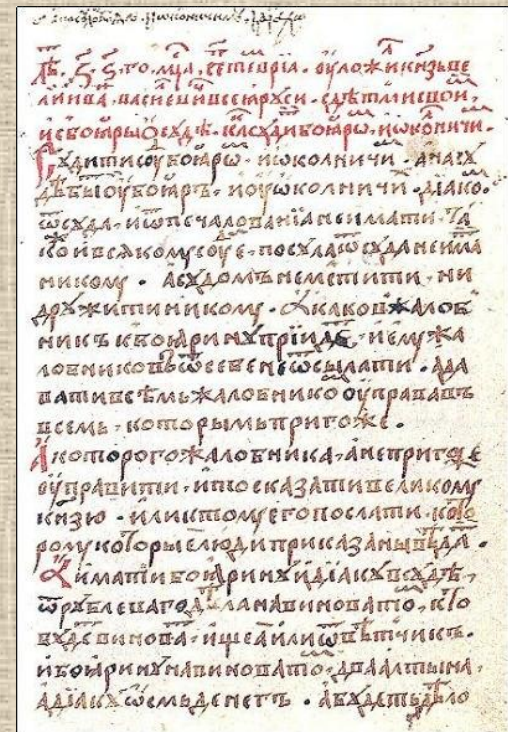 ꙅ҃. ꙅ҃. го. мⷭ҇ца. септеврїа. ѹложи кнѧзь ве
ликїи ива. василевиⷱ҇. всеа рꙋси. с дѣтми своⷨ҇и.
и з боѧры ѡ сꙋдѣ. каⷦ҇ сꙋдиⷮ҇и боѧрѡⷨ҇. и ѡкоⷧ҇ничиⷨ҇.
Сꙋдити сꙋⷣ҇ боѧрѡⷨ҇. и ѡколничиⷨ҇. а на сꙋ
дѣ быти ѹ боѧръ. и ѹ ѡколничиⷯ҇ дїакоⷨ҇.
ѿ сꙋда. и ѿ печалованїа не имати. та
кои всѧкомꙋ сꙋдїе. посꙋла ѿ сꙋда не има
никомꙋ. а сꙋдомъ не мстити. ни
дрꙋжити никомꙋ. А каковъ жалоб
никъ к боѧринꙋ прїидеⷮ҇. и емꙋ жа
лобниковъ ѿ себе не ѿсылати. а да
вати всѣмъ жалобникоⷨ҇ ѹправа въ
всемь. которымъ пригоже.
А которого жалобника. а не пригоже
ѹправити. и то сказати великомꙋ
кнѧзю. или к томꙋ его послати. кото
ромꙋ которые люди приказаны вѣдаⷮ҇.
А имати боѧринꙋ и дїакꙋ в сꙋдѣ.
ѿ рꙋблеваго дѣла на виноватоⷨ҇. кто
бꙋдеⷮ҇ виноваⷮ҇. ищеа или ѿвѣтчикъ.
и боѧринꙋ на виноватоⷨ҇. два алтына.
а дїакꙋ ѡсмь денегъ. а бꙋдетъ дѣло